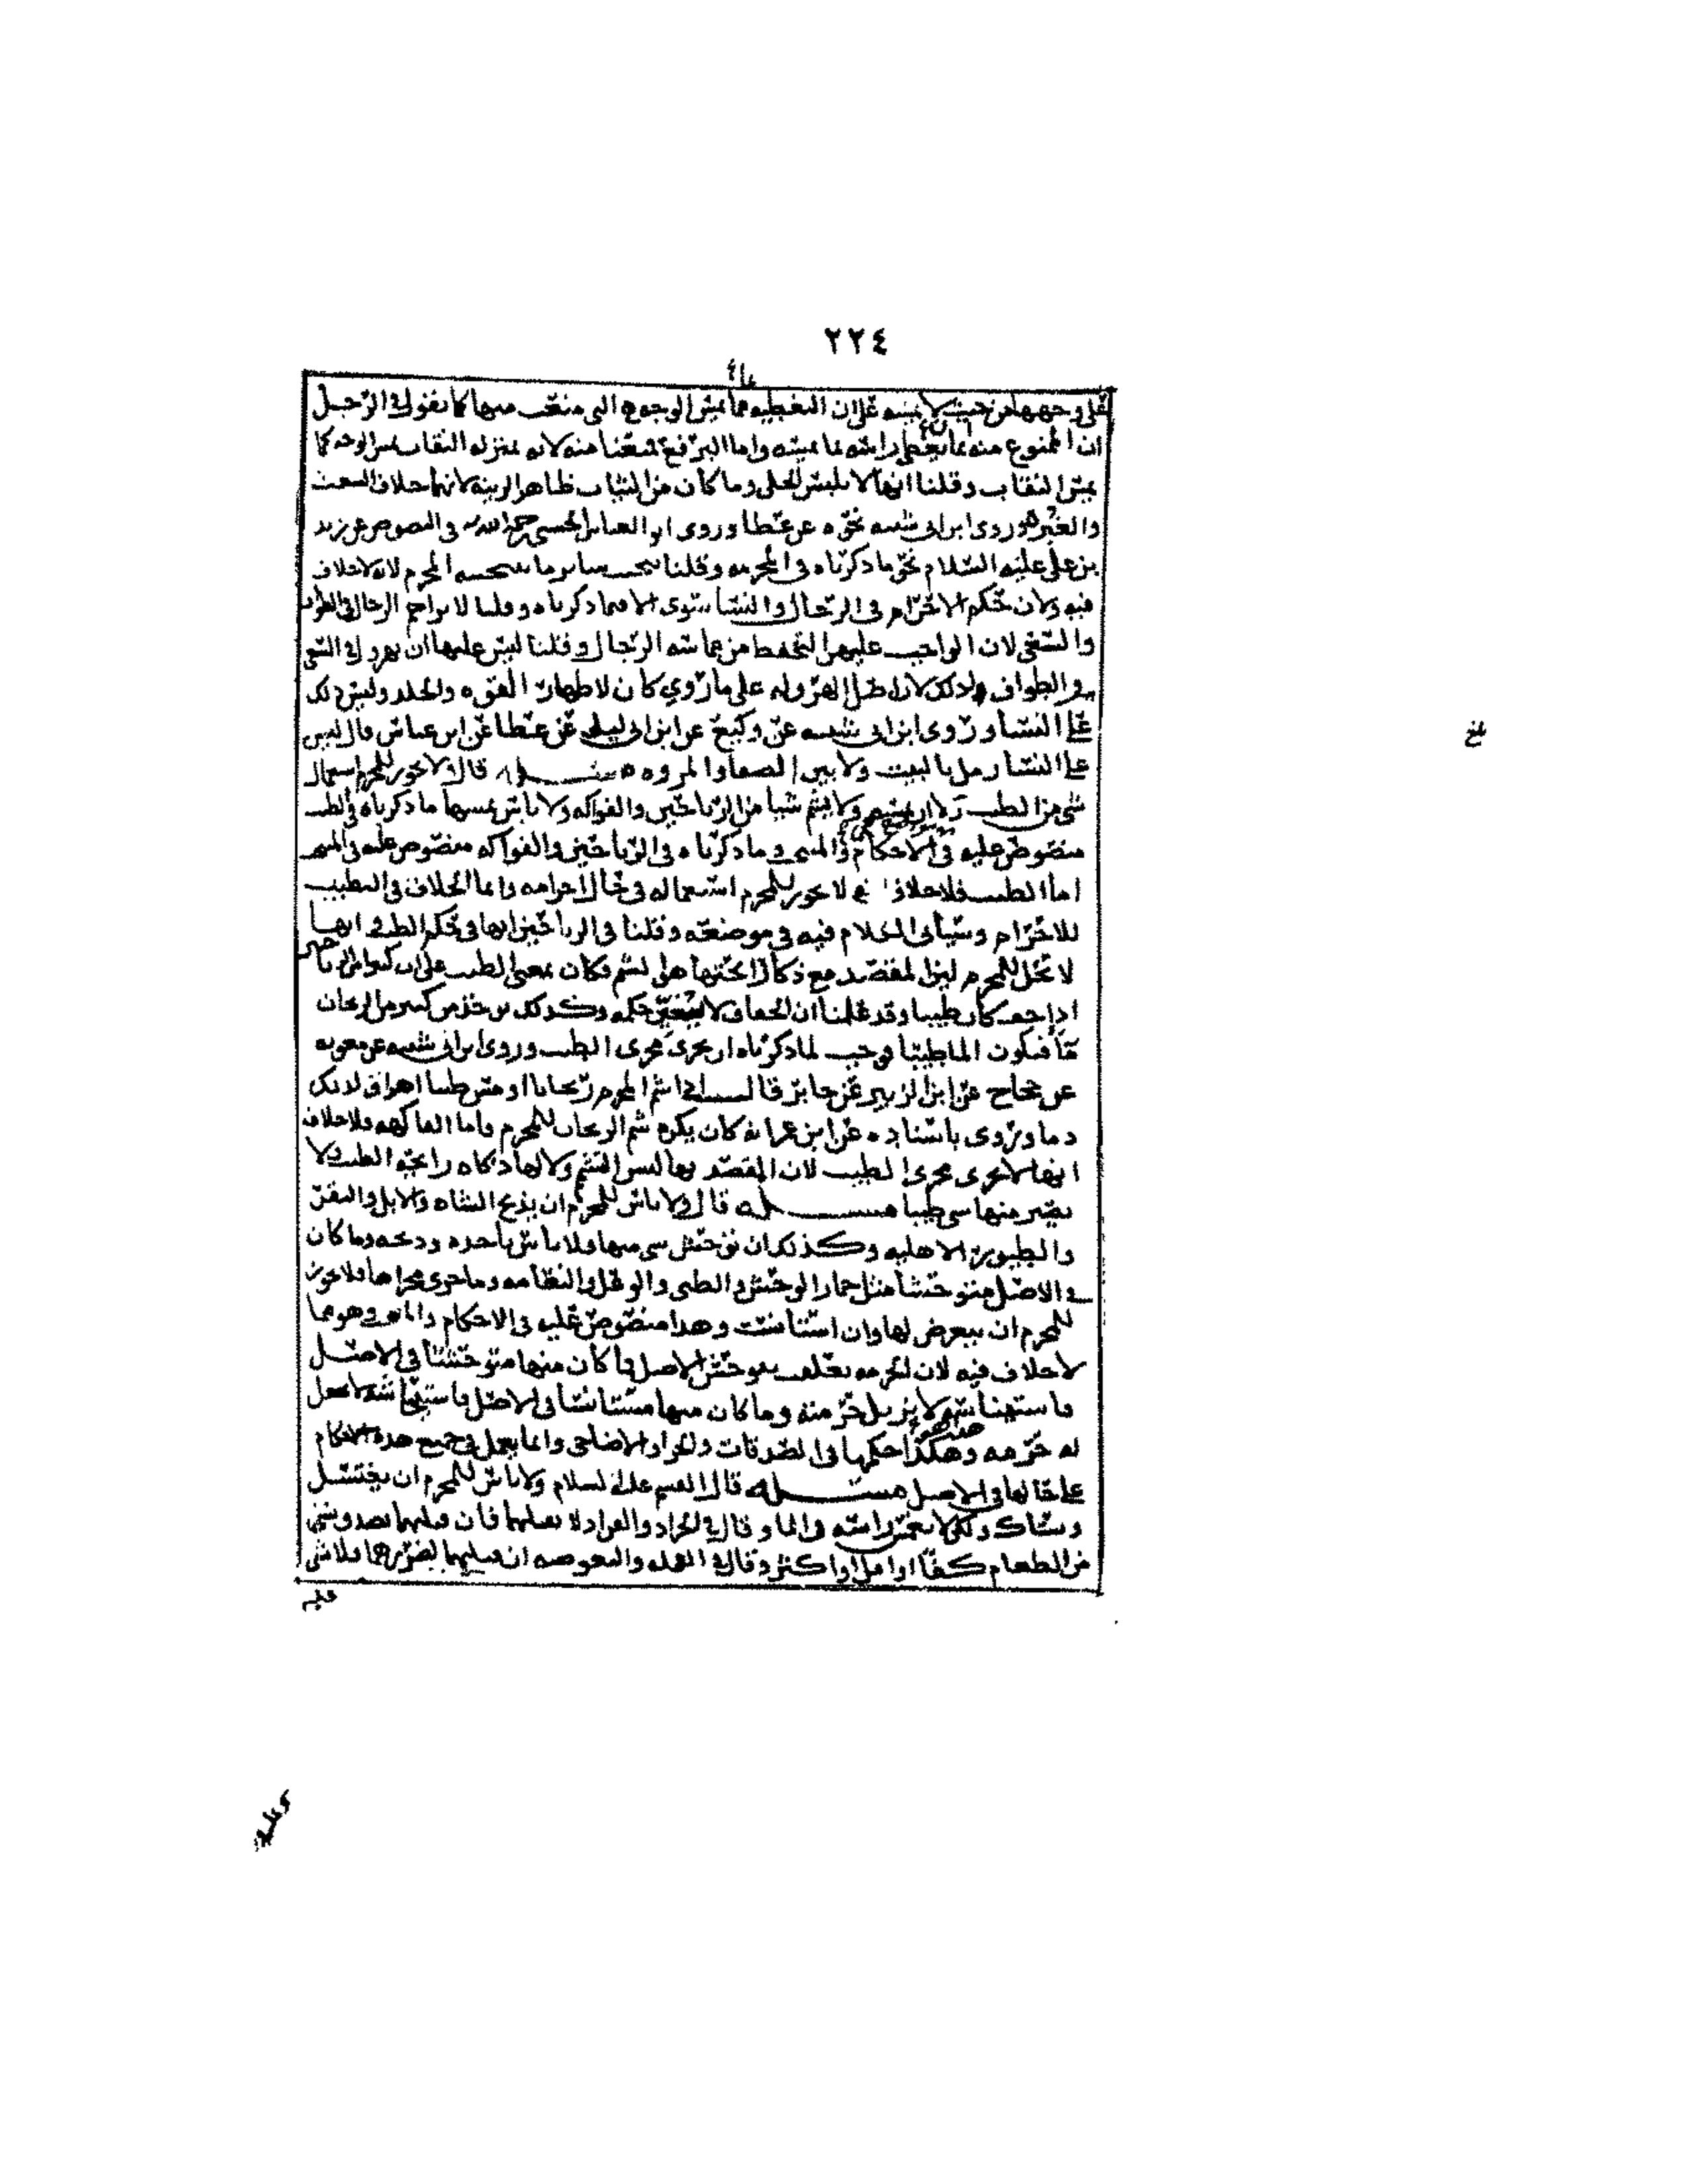 ٢٢٤
على وجهها من حيث لا يمسه على ان التغطيه مما يمس الوجه هي التي منعت منها كما نقول في الرجل
ان الممنوع منه ما يغطي راسه مما يمسه واما البرقع فمنعنا منه لانه بمنزله النقاب يمس الوجه كما
يمس النقاب وقلنا انها لا تلبس الحلي وما كان من الثياب ظاهر الزينه لانها خلاف الشعث
والغبره وروى ابن ابي شيبه نحوه عن عطا وروى ابو العباس الحسني رحمه الله في النصوص عن زيد
بن علي عليه السلام نحو ما ذكرناه في المحرمه وقلنا تجتنب سائر ما يجتنبه المحرم لانه لا خلاف
فيه ولان حكم الاحرام في الرجال والنسا سوى الا فيما ذكرناه وقلنا لا تزاحم الرجال في الطواف
والسعي لان الواجب عليهن التحفظ من مماسه الرجال وقلنا ليس عليها ان تهرول في السعي
والطواف ولذلك لان اصل الهروله على ما روي كان لاظهار القوه والجلد وليس ذلك
على النسا وروى ابن ابي شيبه عن وكيع عن ابن ابي ليلى عن عطا عن ابن عباس قال ليس
على النسا رمل بالبيت ولا بين الصفا والمروه مسئله قال ولا يجوز للمحرم استعمال
شي من الطيب ولا ان يمسه ولا يشم شيا من الرياحين والفواكه ولا باس بمسها ما ذكرناه في الطيب
منصوص عليه في الاحكام وما ذكرناه في الرياحين والفواكه منصوص عليه في المنتخب
اما الطيب فلا خلاف في انه لا يجوز للمحرم استعماله في حال احرامه وانما الخلاف في التطيب
للاحرام وسياتي الكلام فيه في موضعه وقلنا في الرياحين انها في حكم الطيب في انها
لا تحل للمحرم لان المقصد مع ذكا رائحتها هو الشم فكان بمعنى الطيب على ان كثيرا من الرياحين
اذا جف كان طيبا وقد علمنا ان الجفاف لا يغير حكمه وكذلك قد يتخذ من كثير من الريحان
ما فيكون الما طيبا فوجب لما ذكرناه ان يجرى مجرى الطيب وروى ابن ابي شيبه عن معويه
عن حجاج عن ابي الزبير عن جابر قال اذا شم المحرم ريحانا او مس طيبا اهراق لذلك
دما وروى باسناده عن ابن عمر انه كان يكره شم الريحان للمحرم واما الفاكهه فلا خلاف
انها لا تجرى مجرى الطيب لان المقصد بها ليس التشمم ولا لها ذكاه رائحه الطيب ولا
يصير منها شي طيبا مسئله قال ولا باس للمحرم ان يذبح الشاه والابل والبقر
والطيور الاهليه وكذلك ان توحش شي منها فلا باس باخذه وذبحه وما كان
في الاصل متوحشا مثل حمار الوحش والظبي والوعل والنعامه وما جرى مجراها فلا يجوز
للمحرم ان يتعرض لها وان استانست وهذا منصوص عليه في الاحكام وهو مما
لا خلاف فيه لان الحرمه تعلقت بتوحش الاصل فما كان منها متوحشا في الاصل
فاستيناسه لا يزيل حرمته وما كان منها مستانسا في الاصل فاستيحاشه لا يجعل
له حرمه وهكذا حكمها في الصدقات والجزا والاضاحي وانما يعمل في جميع هذه الاحكام
على حالها في الاصل مسئله قال القسم عليه السلام ولا باس للمحرم ان يغتسل
ويستاك ولكن لا يغمس راسه في الما وقال في الجراد والقراد لا يقتلهما فان قتلهما تصدق بشي
من الطعام كفا او اقل او اكثر وقال في القمله والبعوضه ان قتلهما لضررهما فلا شي
عليه
بلغ